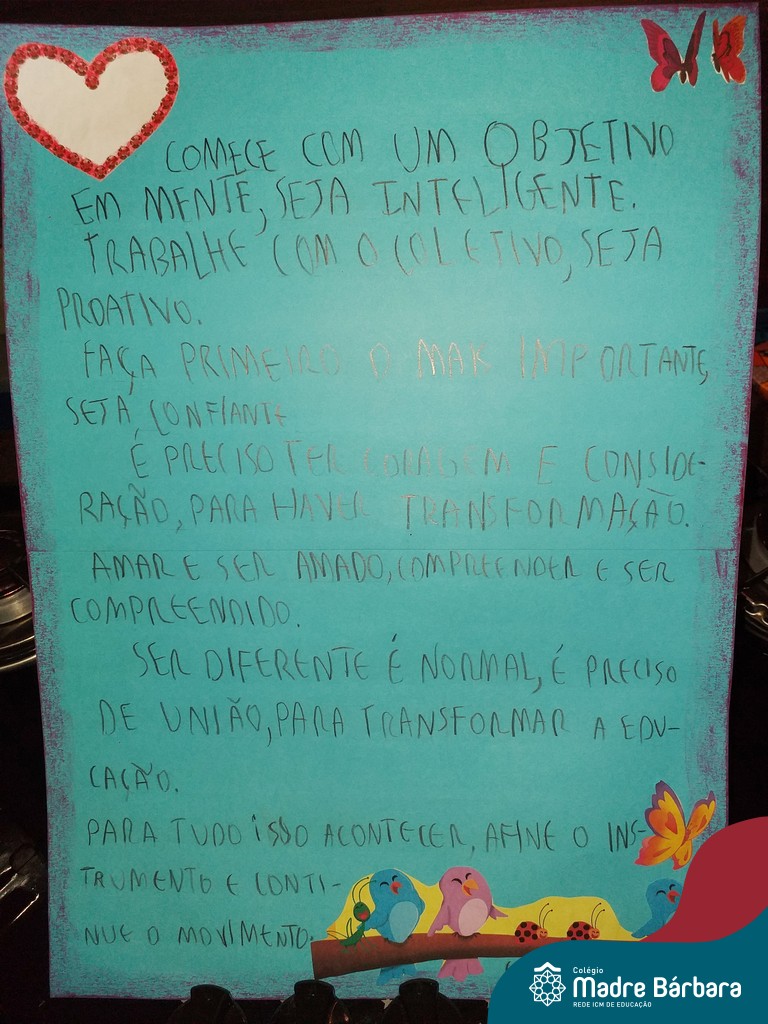 COMECE COM UM OBJETIVO
EM MENTE, SEJA INTELIGENTE.
TRABALHE COM O COLETIVO, SEJA
PROATIVO.
FAÇA PRIMEIRO O MAIS IMPORTANTE,
SEJA CONFIANTE
É PRECISO TER CORAGEM E CONSIDE-
RAÇÃO, PARA HAVER TRANSFORMAÇÃO.
AMAR E SER AMADO, COMPREENDER E SER
COMPREENDIDO.
SER DIFERENTE É NORMAL, É PRECISO
DE UNIÃO, PARA TRANSFORMAR A EDU-
CAÇÃO.
PARA TUDO ISSO ACONTECER, AFINE O INS-
TRUMENTO E CONTI-
NUE O MOVIMENTO.
Colégio
Madre Bárbara
REDE ICM DE EDUCAÇÃO